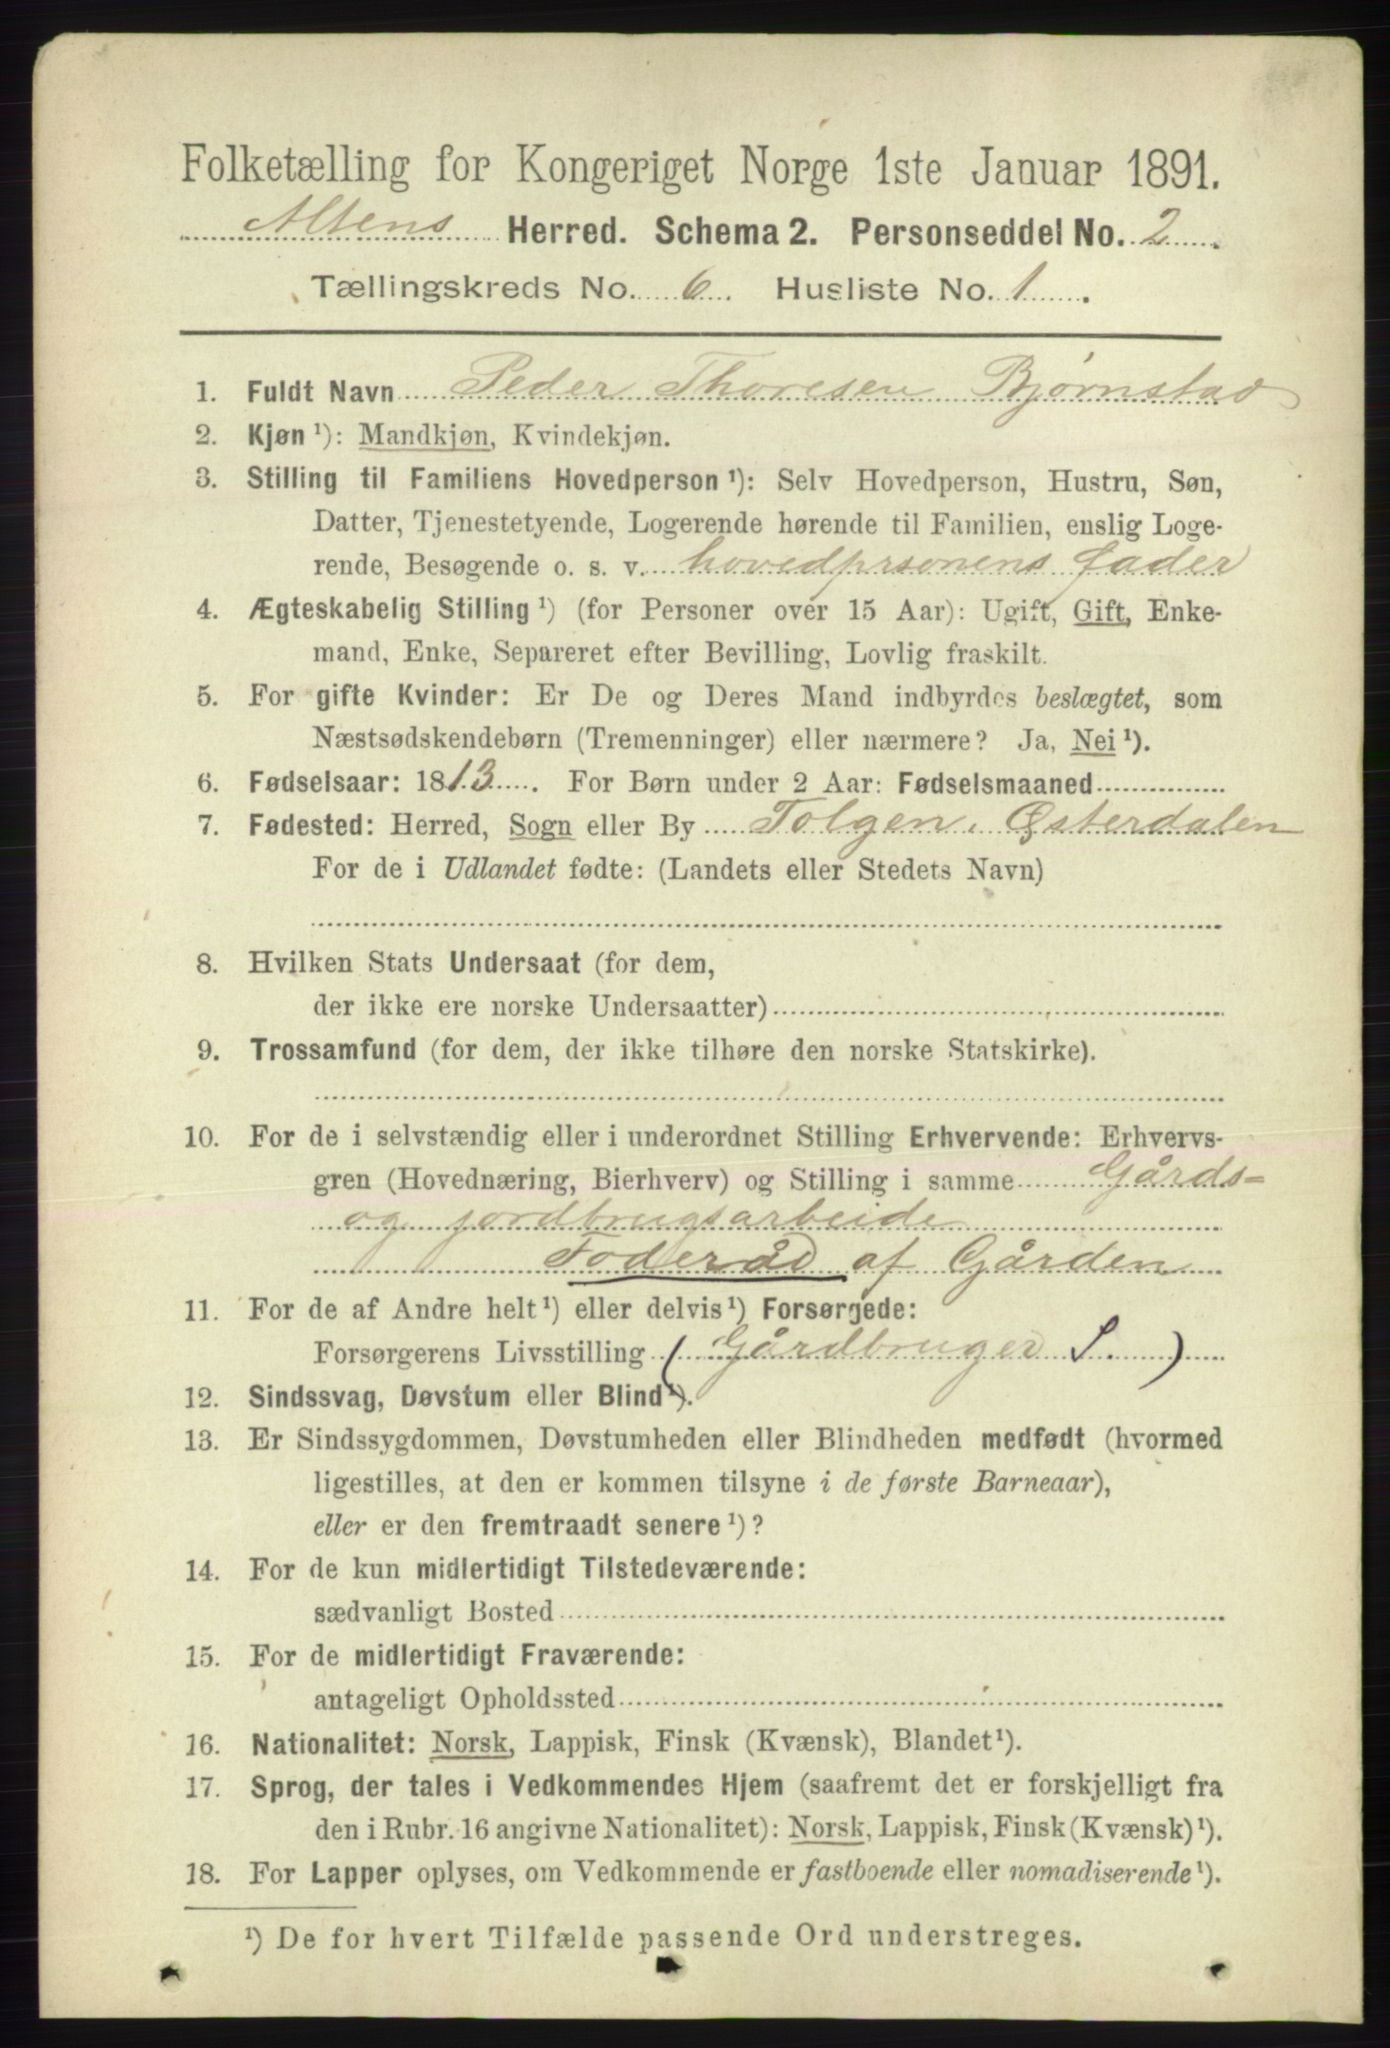 Folketælling for Kongeriget Norge 1ste Januar 1891.
Altens Herred. Schema 2. Personseddel No. 2.
Tællingskreds No. 6. Husliste No. 1.
1. Fuldt Navn Peder Thoresen Bjørnstad
2. Kjøn ¹): Mandkjøn, Kvindekjøn.
3. Stilling til Familiens Hovedperson ¹): Selv Hovedperson, Hustru, Søn,
Datter, Tjenestetyende, Logerende hørende til Familien, enslig Loge-
rende, Besøgende o. s. v. hovedprsonens fader
4. Ægteskabelig Stilling ¹) (for Personer over 15 Aar): Ugift, Gift, Enke-
mand, Enke, Separeret efter Bevilling, Lovlig fraskilt.
5. For gifte Kvinder: Er De og Deres Mand indbyrdes beslægtet, som
Næstsødskendebørn (Tremenninger) eller nærmere? Ja, Nei ¹).
6. Fødselsaar: 1813. For Børn under 2 Aar: Fødselsmaaned
7. Fødested: Herred, Sogn eller By Tolgen, Østerdalen
For de i Udlandet fødte: (Landets eller Stedets Navn)
8. Hvilken Stats Undersaat (for dem,
der ikke ere norske Undersaatter)
9. Trossamfund (for dem, der ikke tilhøre den norske Statskirke).
10. For de i selvstændig eller i underordnet Stilling Erhvervende: Erhvervs-
gren (Hovednæring, Bierhverv) og Stilling i samme Gårds-
og jordbrugsarbeide
Foderåd af Gården
11. For de af Andre helt ¹) eller delvis ¹) Forsørgede:
Forsørgerens Livsstilling (Gårdbruger S.)
12. Sindssvag, Døvstum eller Blind ¹).
13. Er Sindssygdommen, Døvstumheden eller Blindheden medfødt (hvormed
ligestilles, at den er kommen tilsyne i de første Barneaar),
eller er den fremtraadt senere ¹)?
14. For de kun midlertidigt Tilstedeværende:
sædvanligt Bosted
15. For de midlertidigt Fraværende:
antageligt Opholdssted
16. Nationalitet: Norsk, Lappisk, Finsk (Kvænsk), Blandet ¹).
17. Sprog, der tales i Vedkommendes Hjem (saafremt det er forskjelligt fra
den i Rubr. 16 angivne Nationalitet): Norsk, Lappisk, Finsk (Kvænsk) ¹).
18. For Lapper oplyses, om Vedkommende er fastboende eller nomadiserende ¹).
¹) De for hvert Tilfælde passende Ord understreges.